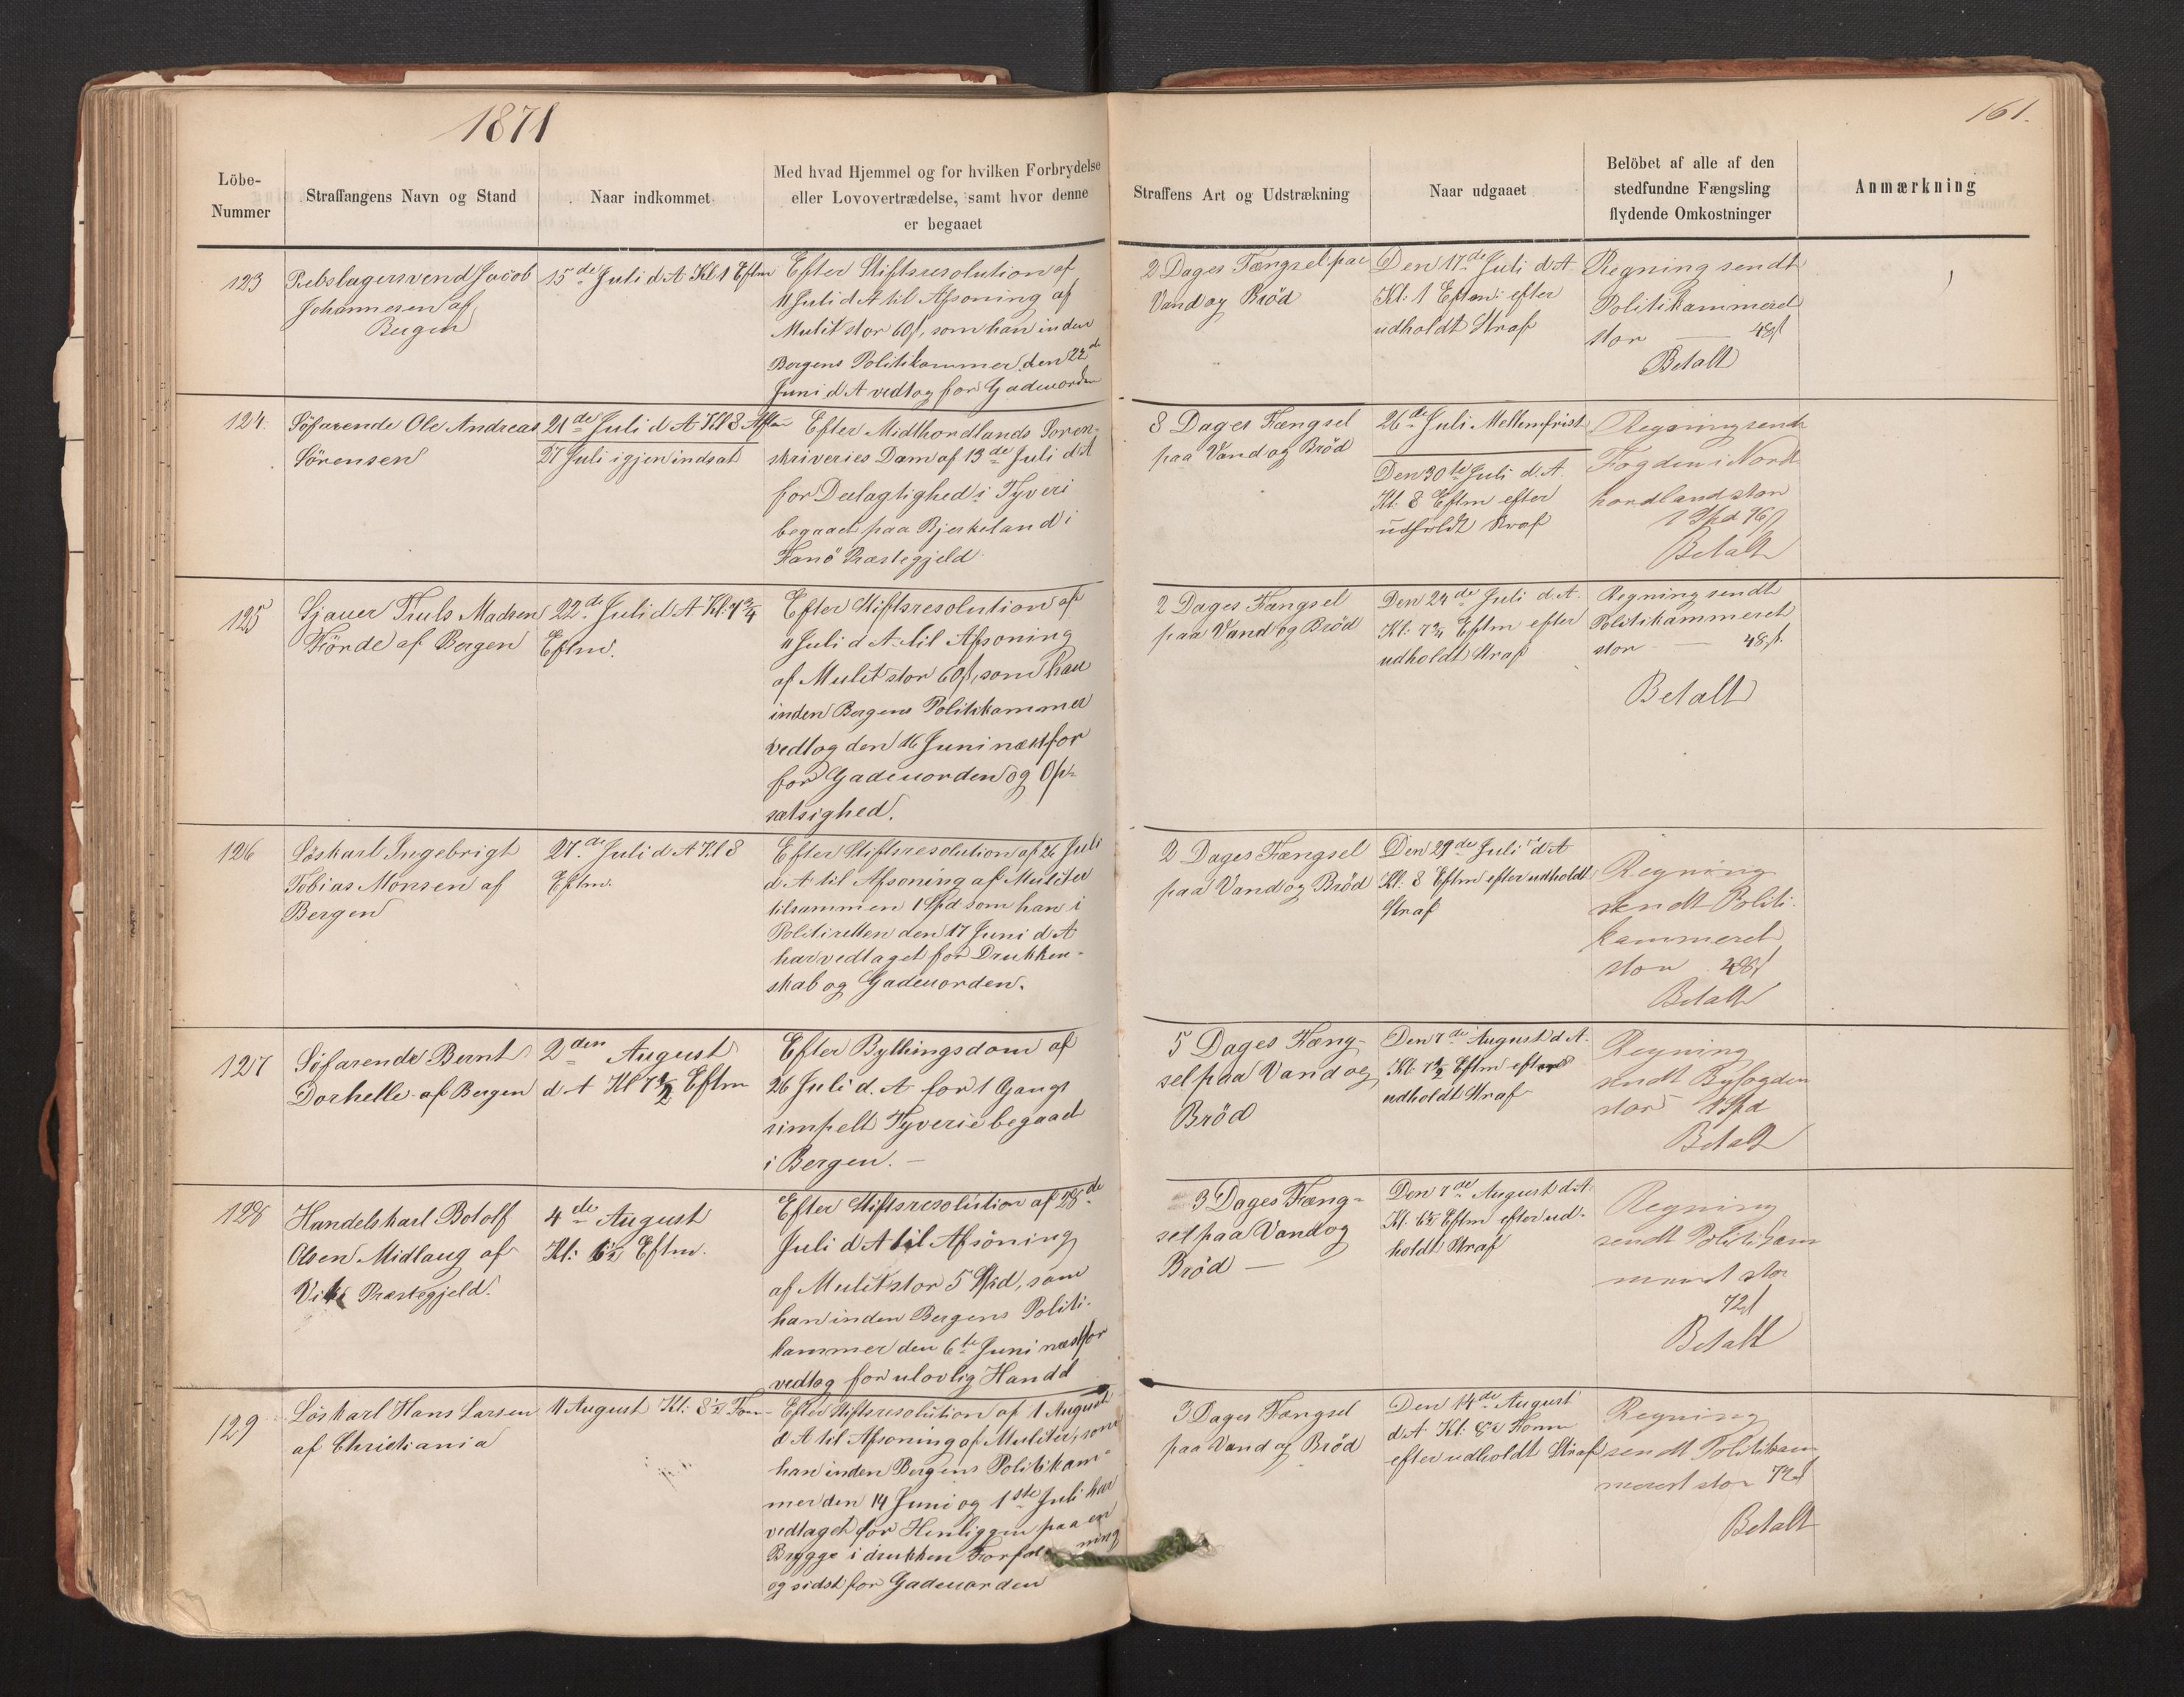 1871
161.
Löbe-
Nummer
Straffangens Navn og Stand
Naar indkommet
Med hvad Hjemmel og for hvilken Forbrydelse
eller Lovovertrædelse, samt hvor denne
er begaaet
Straffens Art og Udstrækning
Naar udgaaet
Belöbet af alle af den
stedfundne Fængsling
flydende Omkostninger
Anmærkning
123
Rebslagersvend Jacob
Johannesen af
Bergen
15de Juli d A Kl 1 Eftm
Efter Stiftsresolution af
11 Juli d A til Afsoning af
Mulkt stor 60 s, som han inden
Bergens Politikammer den 22de
Juni d A vedtog for Gadeuorden
2 Dages Fængsel paa
Vand og Bröd
Den 17de Juli d A.
Kl: 1 Eftm: efter
udholdt Straf
Regning sendt
Politikammeret
stor — 48 s
Betalt
124.
Söfarende Ole Andreas
Sörensen
21de Juli d A Kl 8 Aften
27 Juli igjen indsat
Efter Midthordlands Soren-
skriveries Dom af 13de Juli d A
for Deelagtighed i Tyveri
begaaet paa Bjerkeland i
Hanö Præstegjeld
8 Dages Fængsel
paa Vand og Bröd
26de Juli Mellemfrist
Den 30te Juli d. A.
Kl: 8 Eftm efter
udholdt Straf
Regning sendt
Fogden i Nord
hordland stor
1 Spd 96 s
Betalt
125
Gjauer Truls Madsen
Förde af Bergen
22de Juli d A Kl: 7 3/4
Eftm.
Efter Stiftsresolution af
11 Juli d A til Afsoning
af Mulkt stor 60 s, som han
inden Bergens Politikammer
vedtog den 16 Juni næstfor
for Gadeuorden og Op-
satsighed.
2 Dages Fængsel
paa Vand og Bröd
Den 24de Juli d. A.
Kl: 7 3/4 Eftm efter
udholdt Straf
Regning sendt
Politikammeret
stor — 48 s.
Betalt
126
Löskarl Ingebrigt
Tobias Monsen af
Bergen
27de Juli d A Kl 8
Eftm.
Efter Stiftsresolution af 26 Juli
d A til Afsoning af Mulkter
tilsammen 1 Spd som han i
Politiretten den 17 Juni d A
har vedtaget for Drukken-
skab og Gadeuorden.
2 Dages Fængsel
paa Vand og Bröd
Den 29de Juli d A
Kl: 8 Eftm efter udholdt
Straf
Regning
sendt Politi-
kammeret
stor 48 s
Betalt
127
Söfarende Bernt
Dorhelle af Bergen
2den August
d A Kl 7 1/2 Eftm
Efter Bythingsdom af
26 Juli d. A for 1 Gangs
simpelt Tyverie begaaet
i Bergen. —
5 Dages Fæng-
sel paa Vand og
Bröd
Den 7de August d. A.
Kl: 7 1/2 Eftm efter
udholdt Straf
Regning
sendt Byfogden
stor 1 Spd
Betalt
128
Handelskarl Botolf
Olsen Midlaug af
Viks Præstegjeld.
4de August
Kl: 6 1/2 Eftm.
Efter Stiftsresolution af 28de
Juli d A til Afsöning
af Mulkt stor 5 Spd, som
han inden Bergens Politi-
kammer den 6te Juni næstfor
vedtog for ulovlig Handel
3 Dages Fæng-
sel paa Vand og
Bröd —
Den 7de August d. A.
Kl: 6 1/2 Eftm efter ud-
holdt Straf
Regning
sendt Politikam
meret stor
72 s
Betalt
129
Löskarl Hans Larsen
af Christiania
11 August Kl: 8 1/2 Form-
Efter Stiftsresolution af 1 August
d A til Afsoning af Mulkter, som
han inden Bergens Politikam-
mer den 14 Juni og 1ste Juli har
vedtaget for Henliggen paa en
Brygge i drukken Forfatning
og sidst for Gadeuorden
3 Dages Fængsel
paa Vand og Bröd
Den 14de August
d A Kl: 8 1/2 Form
efter udholdt Straf
Regning
sendt Politikam
meret stor 72 s
Betalt